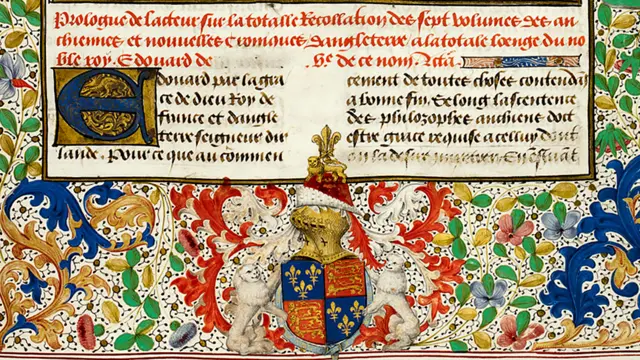 Prologue de lacteur sur la totalle Recollation des sept volumes des an
chiennes et nouuelles Croniques dangleterre a la totale loenge du no
ble roy. Edouard de                 .e de ce nom. Acta.
Edouard par la gra
ce de dieu Roy de
france et dangle
terre seigneur dir
lande. Pour ce que au commen
cement de toutes choses contendans
a bonne fin. Selong la sentence
des philozophes anchiens doit
estre grace requise a celluy dont